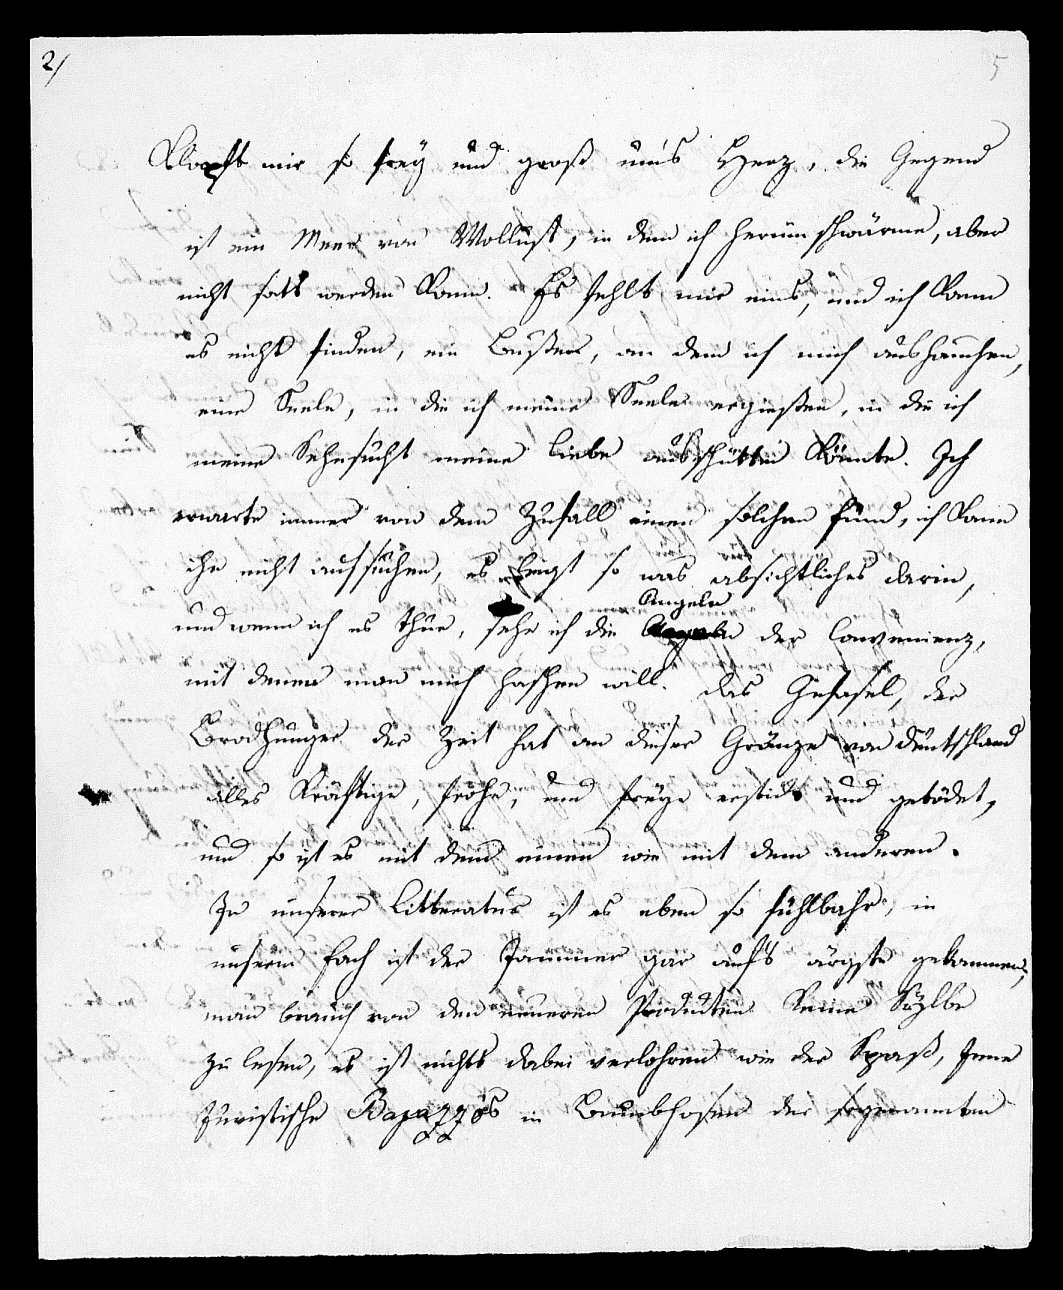 2/
5
Klopft mir so frey und groß um's Herz, die Gegend
ist ein Meer von Wollust, in dem ich herum schwärme, aber
nicht satt werden kann. Es fehlt mir eins, und ich kann
es nicht finden, ein Busen, an dem ich mich aushauchen,
eine Seele, in die ich meine Seele ergießen, in die ich
meine Sehnsucht meine Liebe ausschütten könnte. Ich
erwarte immer von dem Zufall einen solchen Fund, ich kann
ihn nicht aufsuchen, es liegt so was absichtliches darin,
Angeln
und wenn ich es thue, sehe ich die der Convenienz,
mit denen man mich haschen will. das Gefasel, der
Brodhunger der Zeit hat an dieser Gränze von deutschland
alles Kräftige, frohe, und freye erstickt und getödet,
und so ist es mit dem einen wie mit dem anderen.
In unserer Litteratur ist es eben so fühlbahr, in
unserm Fach ist der Jammer gar auf's ärgste gekommen,
man brauch von den neueren Produkten keine Sylbe
zu lesen, es ist nichts dabei verlohren wie der Spaß, Jene
Juristische Bajazzos in der sogenannten